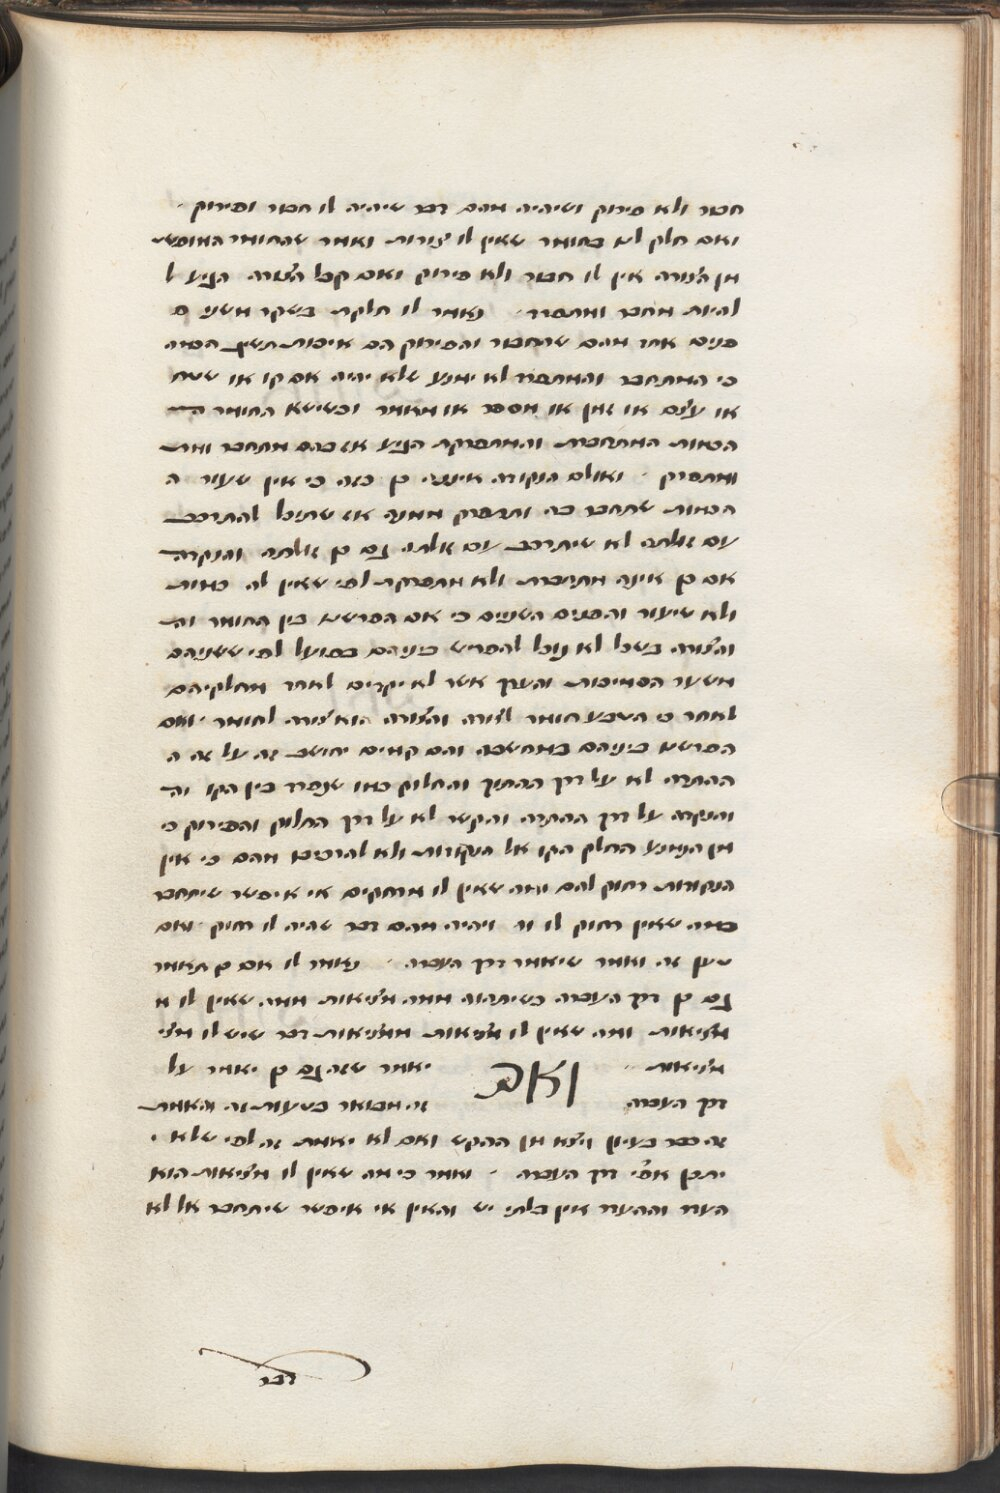 חבור ולא פירוק ושיהיה מהם דבר שיהיה לו חבור ופירוק
ואם חלק לא בחומר שאין לו צורות ואמר שהחומר המופשט
מן הצורה אין לו חבור ולא פירוק ואם קבל הצורה הגיע ל
להיות מחובר ומתפרד נאמר לו חלקת בשקר משני ם
פנים אחד מהם שהחבור והפירוק הם איכות תשיג הכמה
כי המתחבר והמתפרד לא ימנע שלא יהיה אם קו או שטח
או עצם או זמן או מספר או מאמר וכשישא החומר ה
הכמות המתחברת והמתפרקת הגיע אז בהם מתחבר ומת
ומתפרק ואולם הנקודה איננה כן בזה כי אין שעור ה
הכמות שתחבר בה ותפסק ממנה אז שתוכל להתרכב
עם זולתה לא שיתרכב עם זולתו גם כן זולתה והנקודה
אם כן אינה מתחברת ולא מתפרקת לפי שאין לה כמות
ולא שיעור והפנים השניים כי אם הפרשת בין החומר וה
והצורה בשכל לא נוכל להפריש ביניהם בפועל לפי ששניהם
משער הסמיכות והערך אשר לא יקדים לאחד מחלקיהם
לאחר כי הטבע חומר לצורה והצורה היא צורה לחומר ואם
הפרשת ביניהם במחשבה והם קיימים יחושב זה על זה ה
ההתרה לא על דרך ההתוך והחלוק כמו שנפריד בין הקו וה
והנקודה על דרך ההתרה והקשר לא על דרך החלוק והפירוק כי
מן הנמנע החלק הקו אל הנקודות ולא להרכיבו מהם כי אין
הנקודות רחוק להם ומה שאין לו מרחקים אי איפשר שיתחבר
במה שאין רחוק לו ויהיה מהם דבר שהיה לו רחוק ואם
טען זה ואמר שיאמר דרך העברה נאמר לו אם כן תאמר
גם כן דרך העברה כשיתהוה ממה מציאות ממה שאין לו מ
מציאות ומה שאין לו מציאות ממציאות דבר שיש לו מצי
מציאות ואם יאמר שזה גם כן יאמר על
דרך העברה זה מבואר בטעות זה והאמת
זה כבר בעיון ויצא מן ההקש ואם לא יאמת זה לפי שלא י
יתכן אצלי דרך העברה ואמר כי מה שאין לו מציאות הוא
העדר וההעדר אין בלתי יש והאין אי איפשר שיתחבר אל לא
דבר